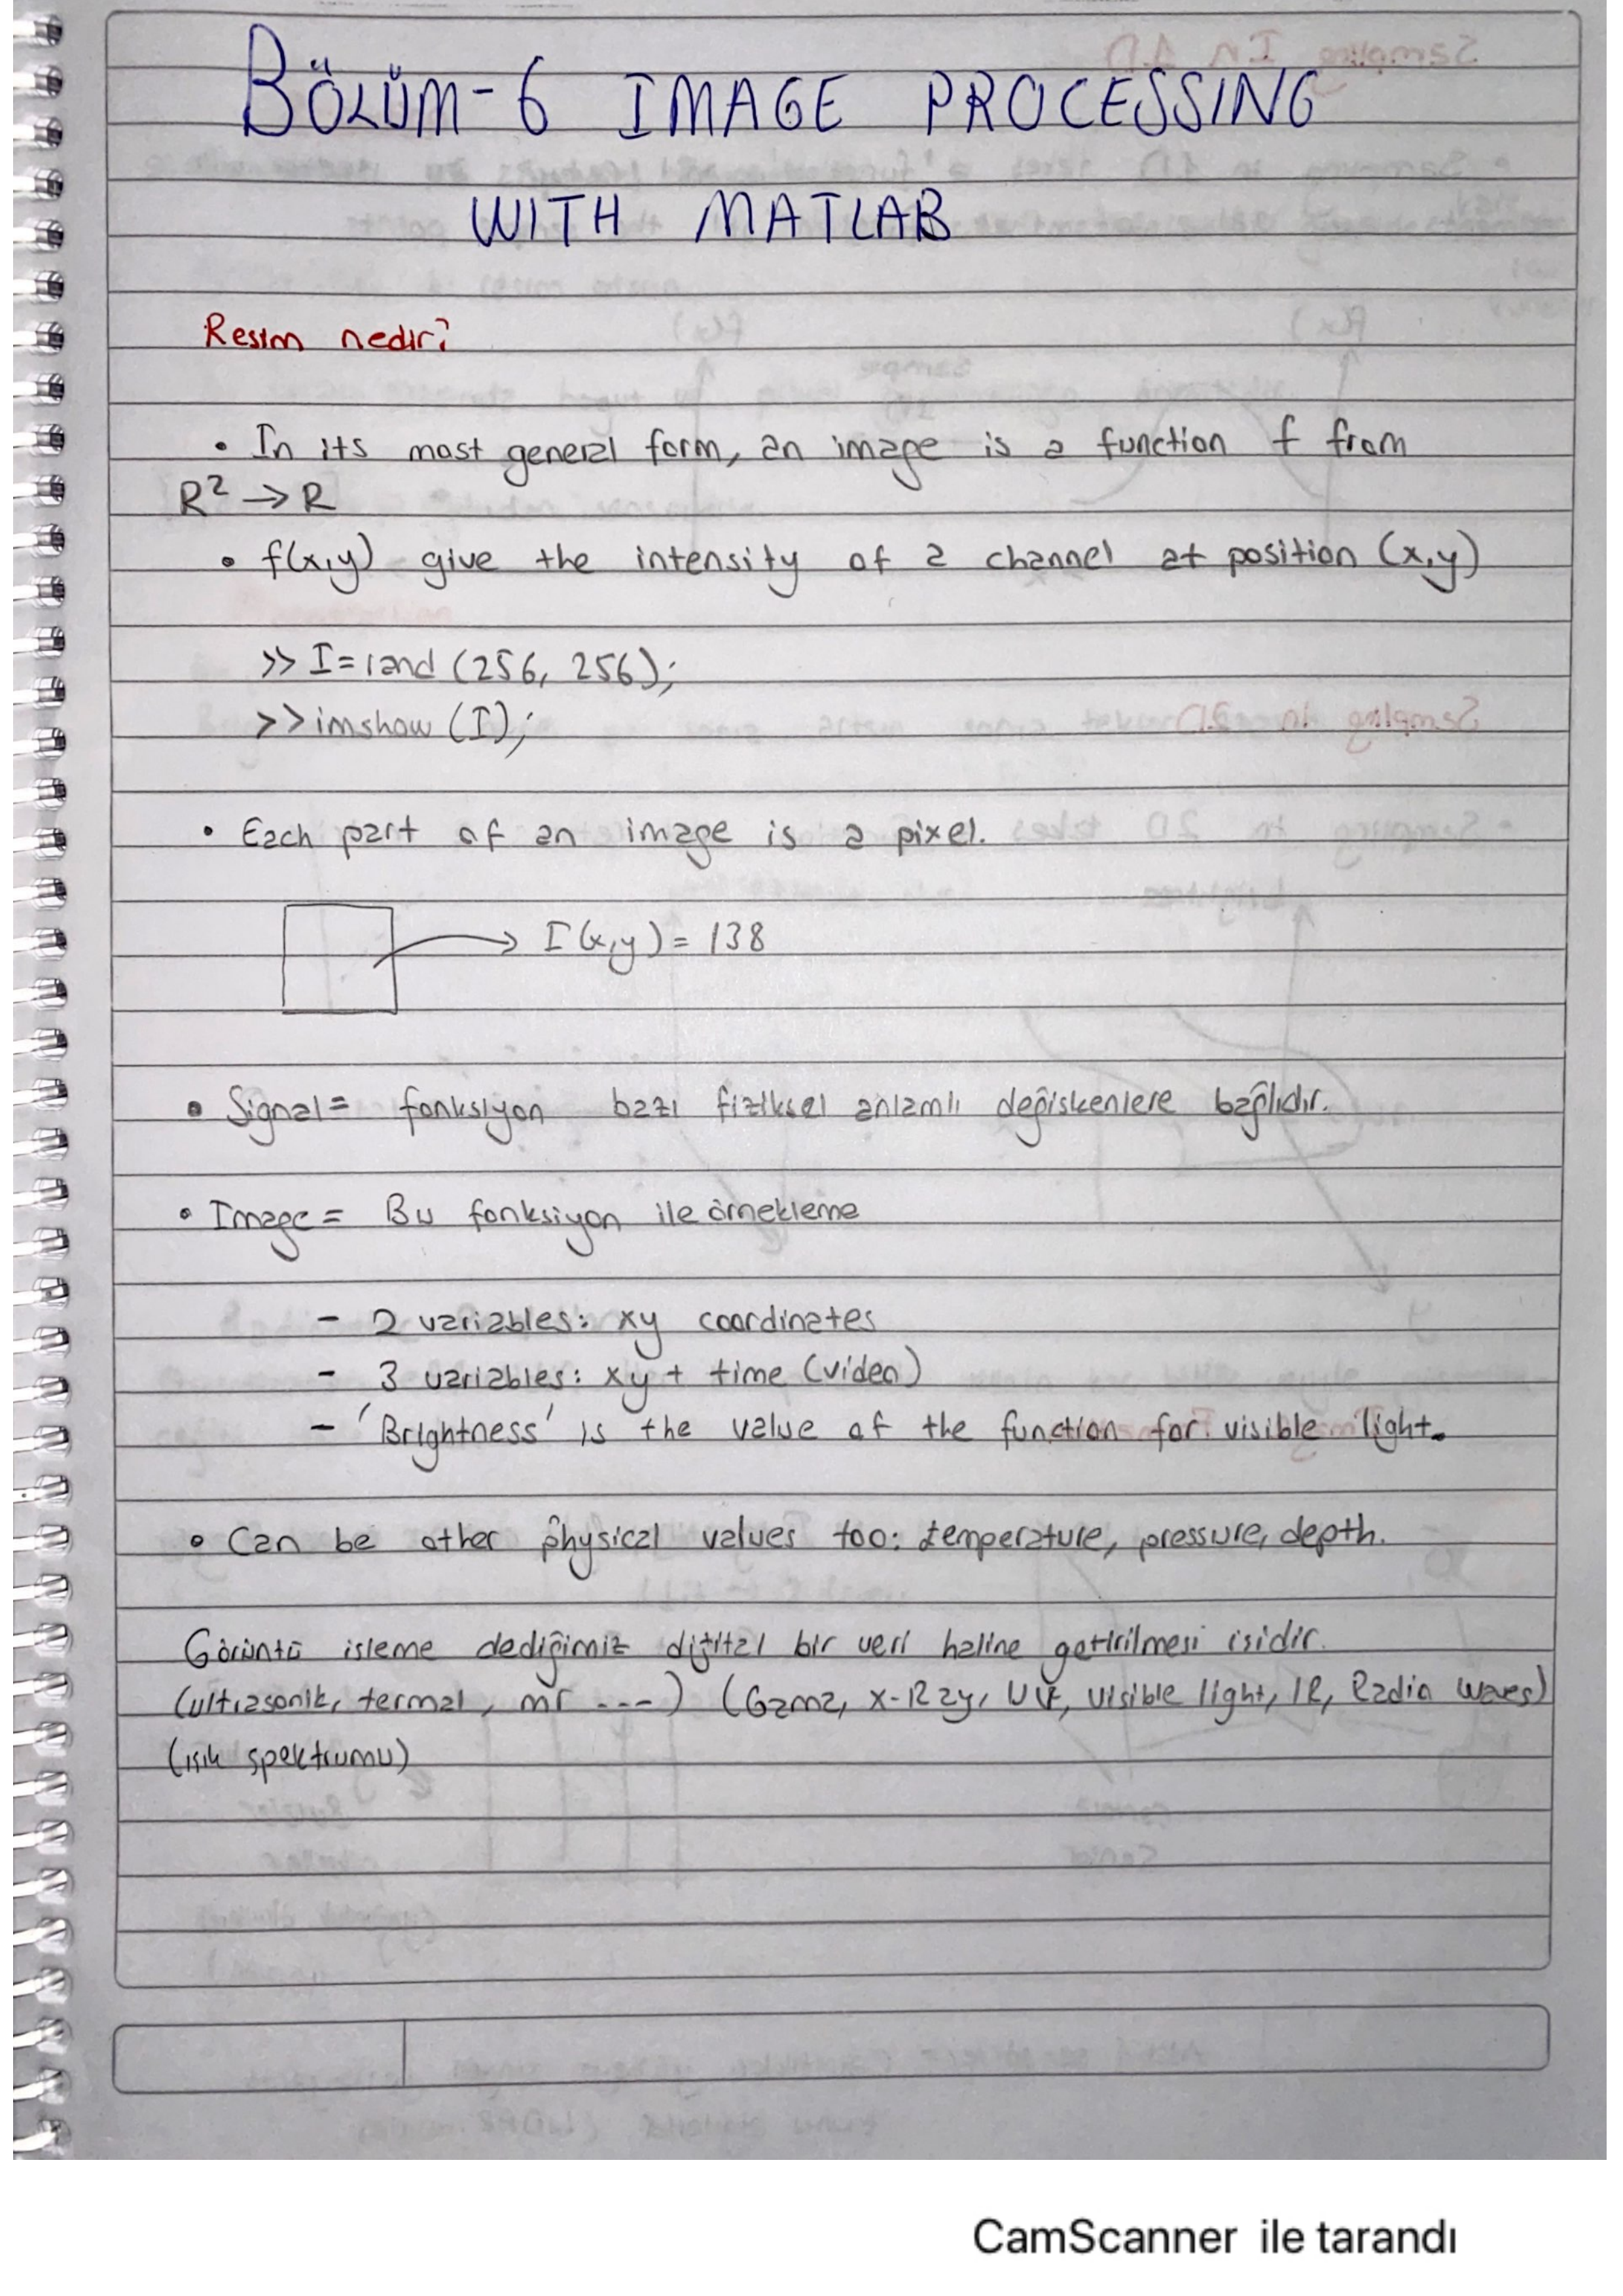 BÖLÜM-6 IMAGE PROCESSING
WITH MATLAB
Resim nedir?
• In its most general form, an image is a function f from
R² → R
• f(x,y) give the intensity of a channel at position (x,y)
>> I=rand (256, 256);
>> imshow (I);
• Each part of an image is a pixel.
→ I(x,y) = 138
• Signal = fonksiyon bazı fiziksel anlamlı değiskenlere bağlıdır.
• Image = Bu fonksiyon ile örnekleme
- 2 variables: xy coordinates
- 3 variables: xy + time (video)
- 'Brightness' is the value of the function for visible light.
• Can be other physical values too: temperature, pressure, depth.
Görüntü isleme dediğimiz dijital bir veri haline getirilmesi isidir.
(ultrasonik, termal, mr ---) (Gama, X-Ray, UV, visible light, IR, Radio waves)
(isik spektrumu)
CamScanner ile tarandı